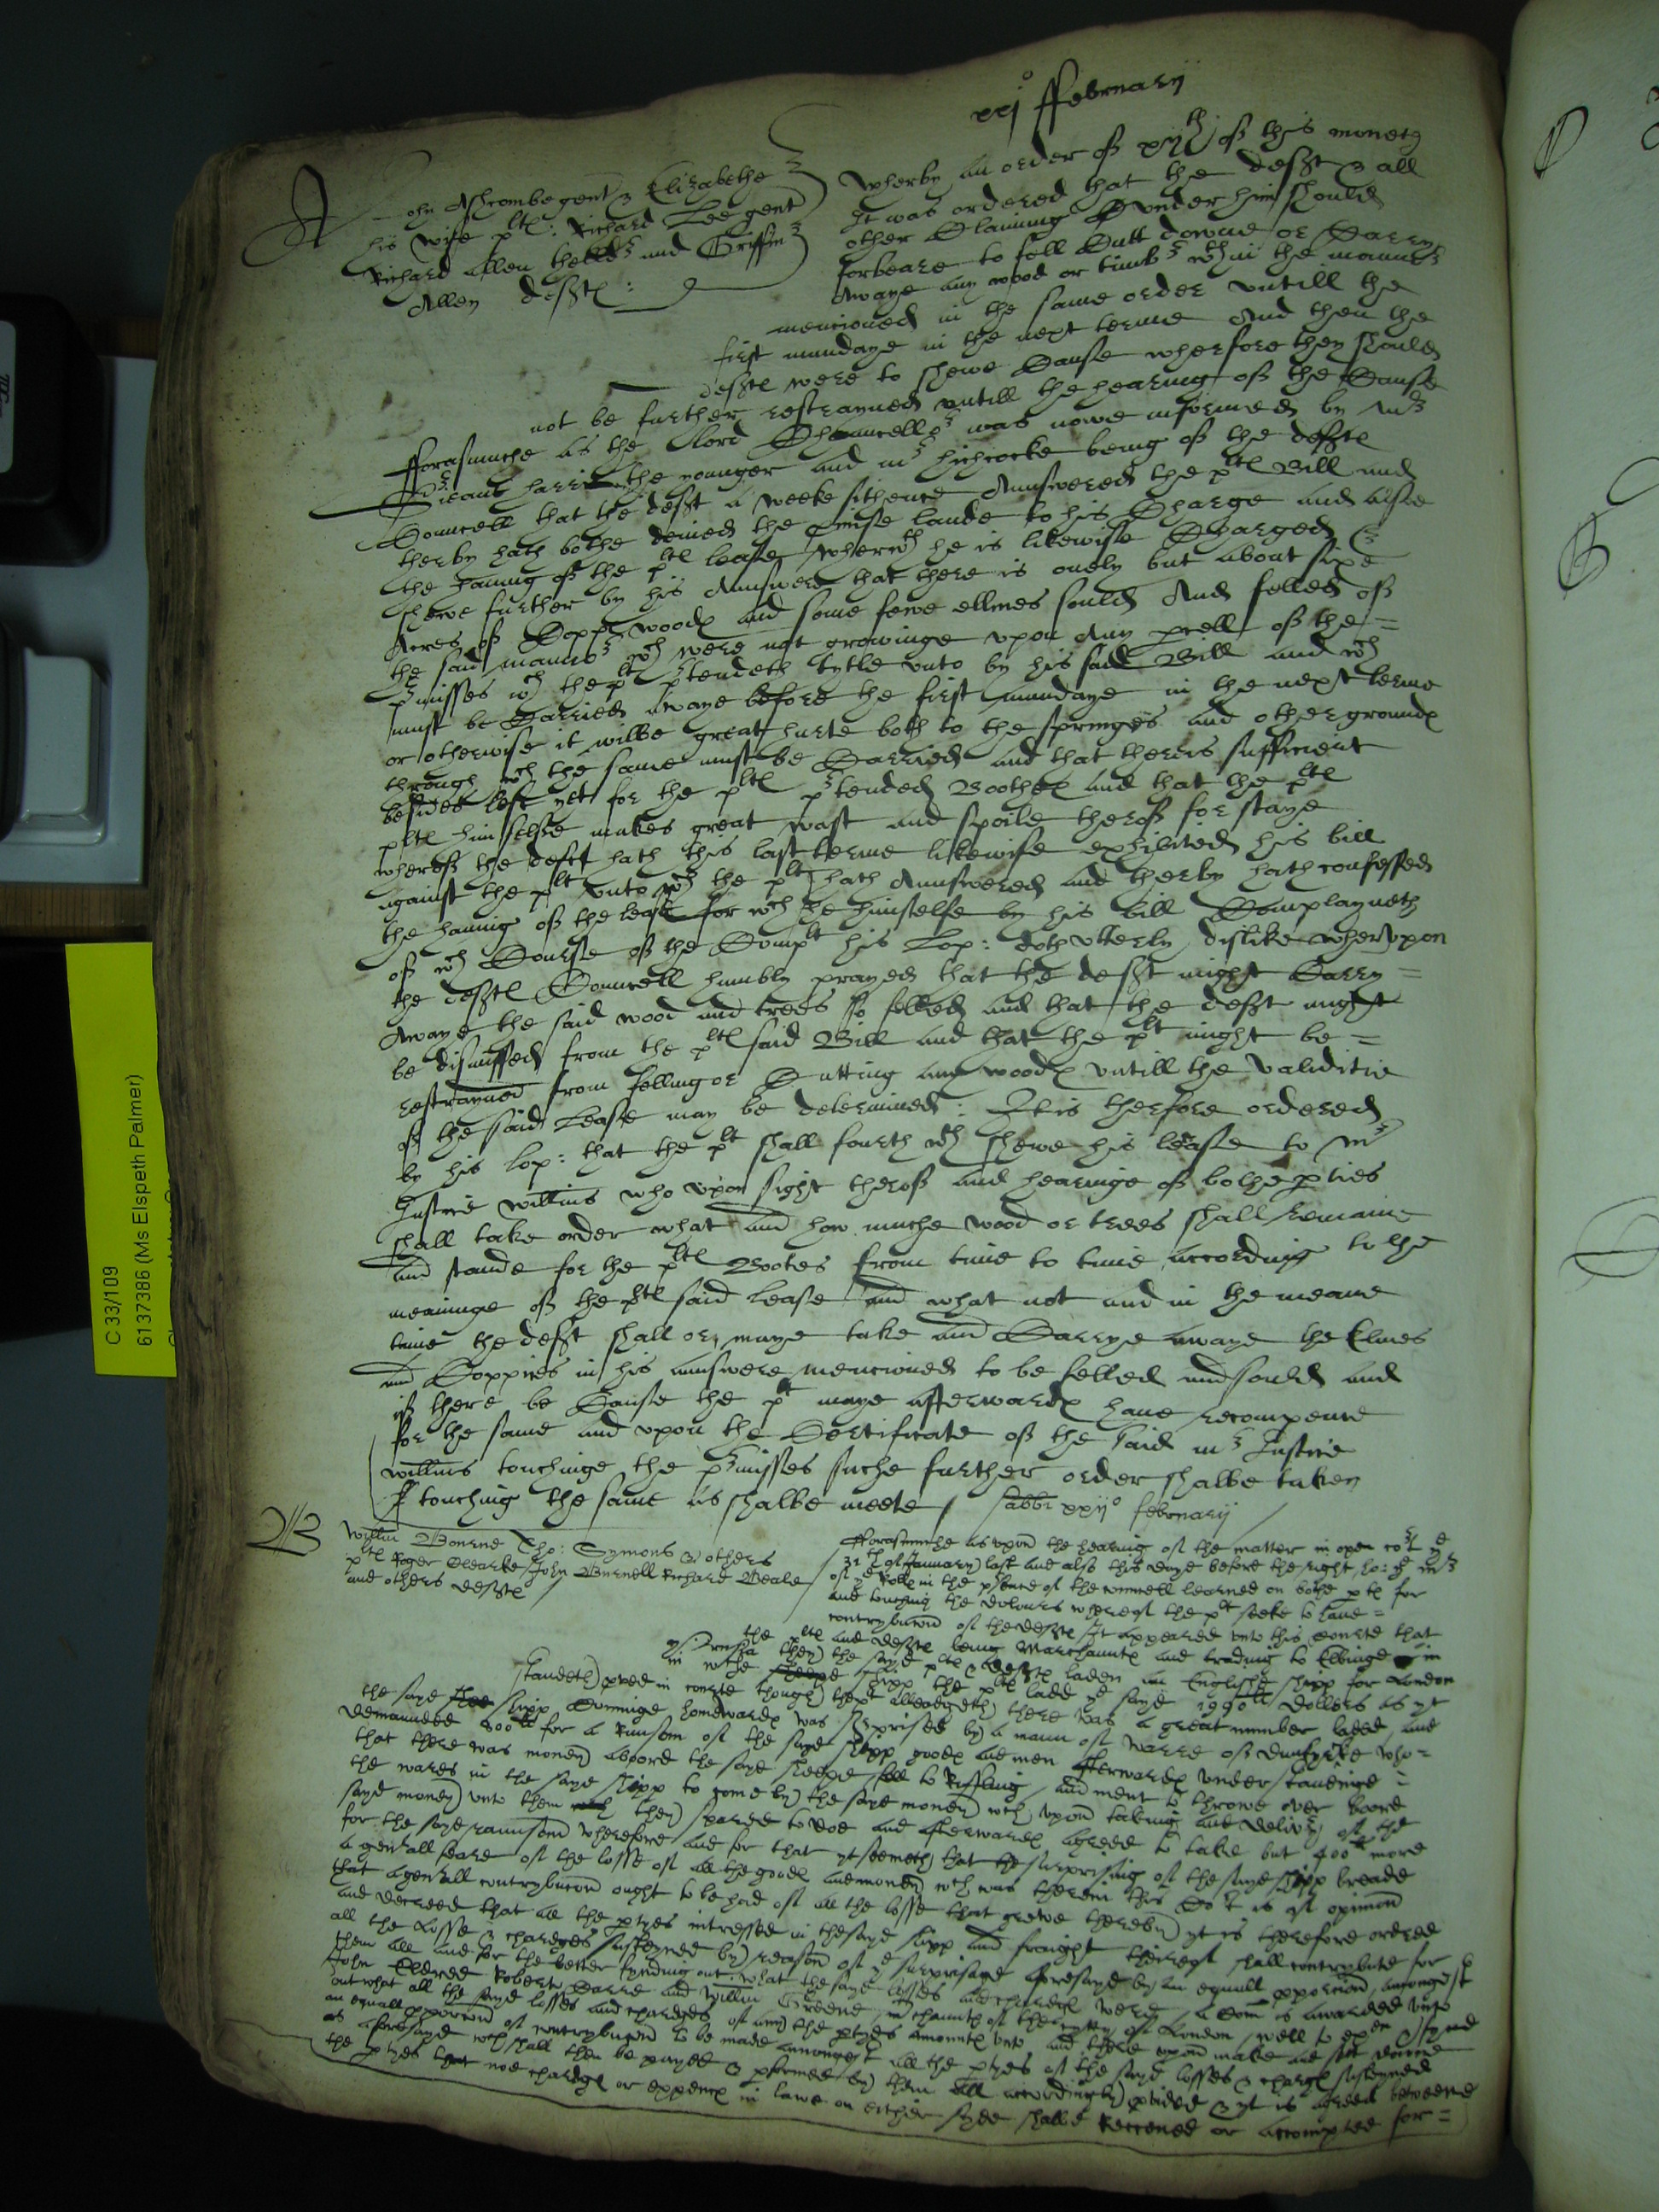 xxj° ffebruarij
A
John Ashcombe gent & Elizabethe
his wife plts: Richard Lee gent
Richard Allen thelder and Griffin
Allen deftes:
Wherby an order of xijth of this moneth
It was ordered that the deft & all
other Claiming by & under him should
forbeare to fell Cutt downe or Carry
Awaye any wood or timber wch in the mannor
mencioned in the same order untill the
first mundaye in the next terme And then the
deftes were to shewe Cause wherfore they should
not be further restrayned untill the hearing of the Cause
fforasmuche as the Lord Chauncellor was nowe informed by Mr
harris the younger and mr hichcocke being of the deftes
Councell that the deft a weeke sithence Aunswered the plts Bill and
therby hath bothe denied the lande to his Charge and alsoe
the having of the plts lease wherwth he is likewise Charged &
shewe further by his Aunswere that there is onely but about sixe
Acres of Coppes woodes and some fewe ellmes sould And felled of
the said mannor wch were not growinge upon Any prcell of the =
prmisses wch the plt prtendeth tytle unto by his said Bill and wch
must be Carried Awaye before the first mundaye in the next terme
or otherwise it wilbe great hurte both to the springes and other groundes
through wch the same must be Carried and that there is sufficient
besides left yet for the plts prtended Boothes and that the plts
plts himselfe makes great wast and spoile therof for staye
wherof the deft hath this last terme likewise exhibited his bill
against the plt unto wch the plt hath Aunswered and therby hath confessed
the having of the lease for wch he himselfe by his bill Complayneth
of wch Course of the Complt his Lop: doth utterly dislike wherupon
the deftes Councell humbly prayed that the deft might Carry =
Awaye the said wood and trees so felled and that the deft might
be dismissed from the plts said Bill and that the plt might be =
restrayned from felling or Cutting any woodes untill the validitie
of the said Lease may be determined: It is therfore ordered
by his Lop: that the plt shall fourth wth shewe his lease to Mr
Justice willms who upon sight therof and hearinge of bothe pties
shall take order what and how muche wood or trees shall remaine
and stande for the plts Bootes from time to time according to the
meaninge of the plts said lease and what not and in the meane
time the deft shall or maye take and Carrye awaye the Elmes
and Coppies in his aunswere mencioned to be felled and sould and
if there be Cause the plt maye afterwardes have recompence
for the same and upon the Certificate of the said mr Justice
willms touchinge the prmisses suche further order shalbe taken
touching the same as shalbe meete / Sabbi xxij° februarij
B
Willm Bourne Tho: Symons & others
plts Roger Clearke John Burnell Richard Beale
and others deftes
fforasmuche as upon the hearing of the matter in open cort ye
31th of January last and also this daye before the right ho: ye mr
of ye Rolles in the prsence of the councell learned on bothe ptes for
and touching the dolours wherof the plt seeke to have =
contrybucon of the deftes It appeared unto this courte that
the plts and deftes being Marchauntes and trading to Elbinge in
they the sayd plts & deftes laden an Englishe shipp for London
in wche shipp the plts ladd ye sayd 1990 dollers as yt
standeth proved in courte though the plt alleadgeth there was a great number laded and
the saye shipp comminge homewardes was surprised by a mann of warre of dunkyrke who =
demaunded 800li for a Runsom of the saye shipp goodes and men Afterwardes understandinge =
that there was money aboord the saye sheepe fell to Ryfling and ment to throwe over boord
the wares in the saye shipp to come by the saye money wch upon taking and delivy of the
saye money unto them they spared to doe and afterwardes agreed to take but 400li more
for the saye raunsom wherefore and for that yt seemeth that the surprising of the saye shipp breade
a genrall feare of the losse of all the goodes and money wch was therein this Cort is of opinion
that a genrall contrybucon ought to be had of all the losse that grewe thereby yt is therefore ordered
and decreed that all the ptyes intressed in the sayd shipp and fraight thereof shall contrybute for
all the losse & chardges susteyned by reason of ye surprisinge aforesayd by an equall pporcion amongest
them all and for the better fynding out what the saye losses and chardges were a Com is awarded unto
John Eldred Robert Carre and Willm Greene mchaunts of the cytty of London well to exen & fynd
out what all the sayd losses and chardges of any the ptyes amountes unto and there upon make and sett downe
an equall pporcion of contrybucon to be made amongest all the ptyes of the sayd losses & chargs susteyned
as aforesayd wch shall then be payed & pformed by them all accordingly pvided & yt is agreed betweene
the ptyes that noe chardges or expences in lawe on either syde shalbe reckoned or accompted for =
C 33/109
6137386 (Ms Elspeth Palmer)